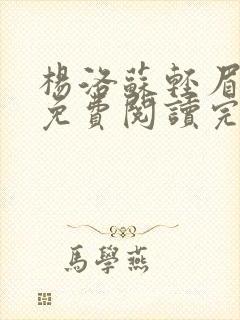 楊洛蘇輕眉
免費閱讀完
馬學燕